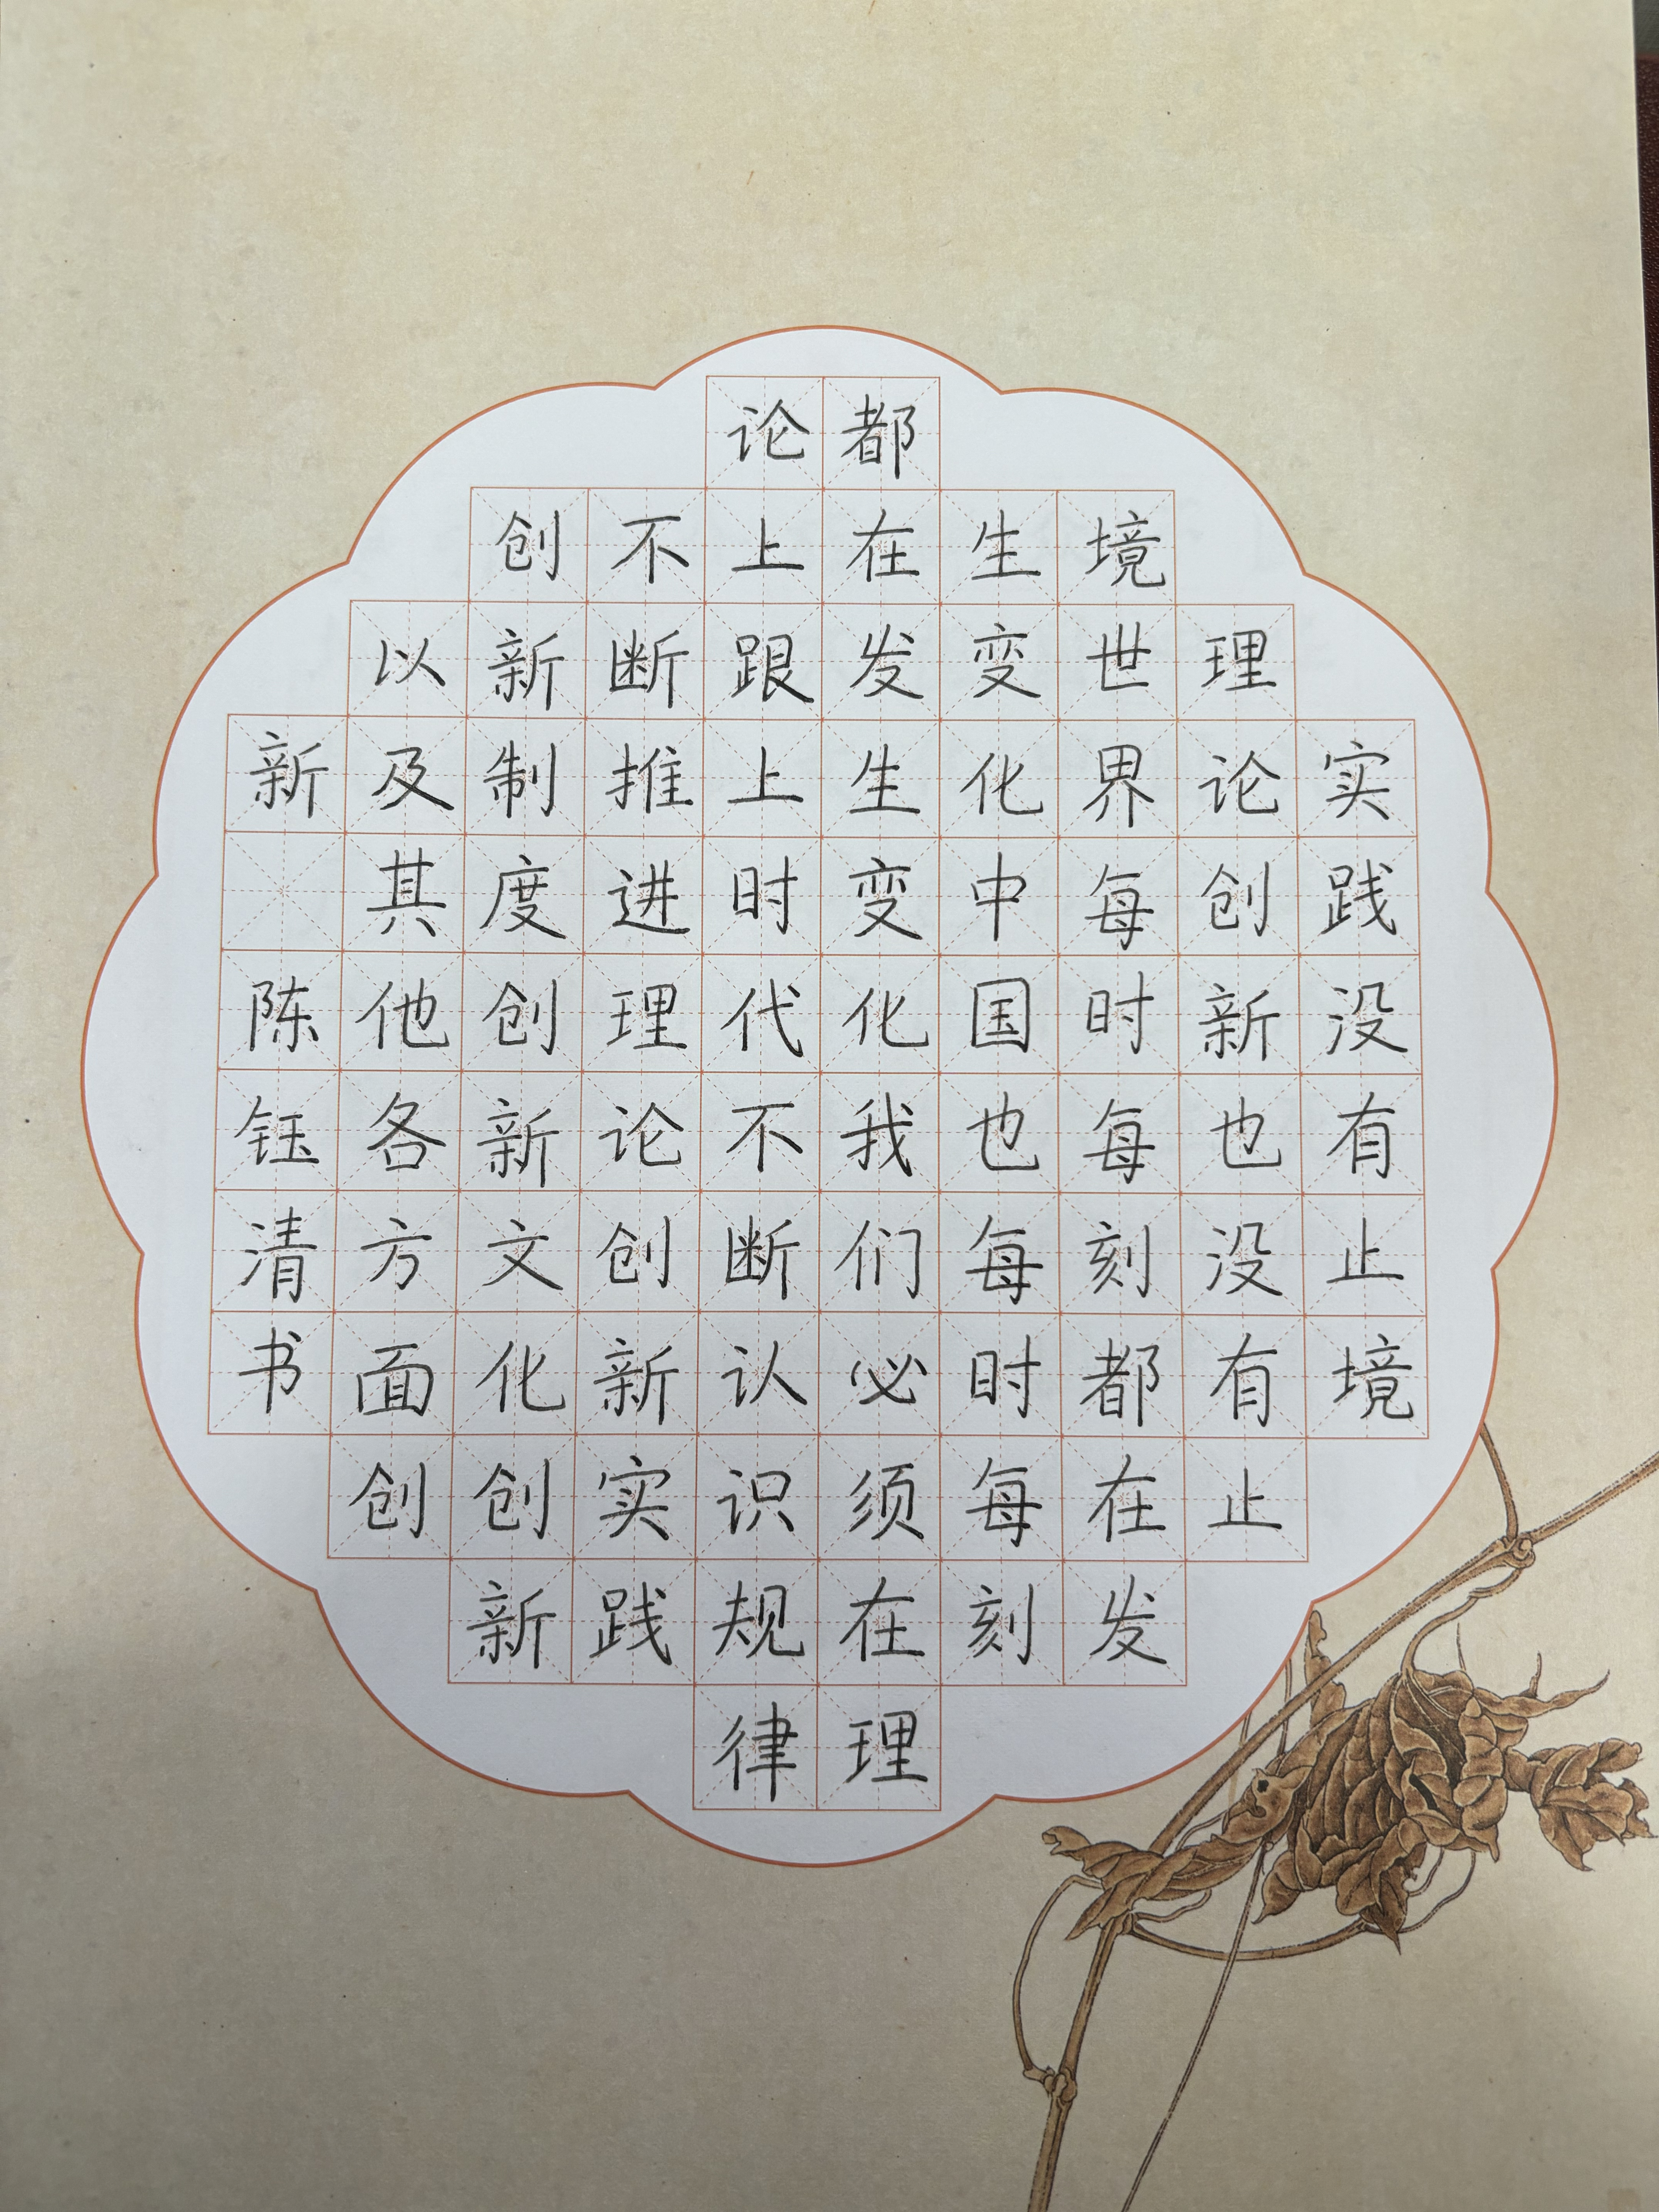 实践没有止境
理论创新也没有止
境世界每时每刻都在发
生变化中国也每时每刻
都在发生变化我们必须在理
论上跟上时代不断认识规律
不断推进理论创新实践
创新制度创新文化创新
以及其他各方面创
新 陈钰清书